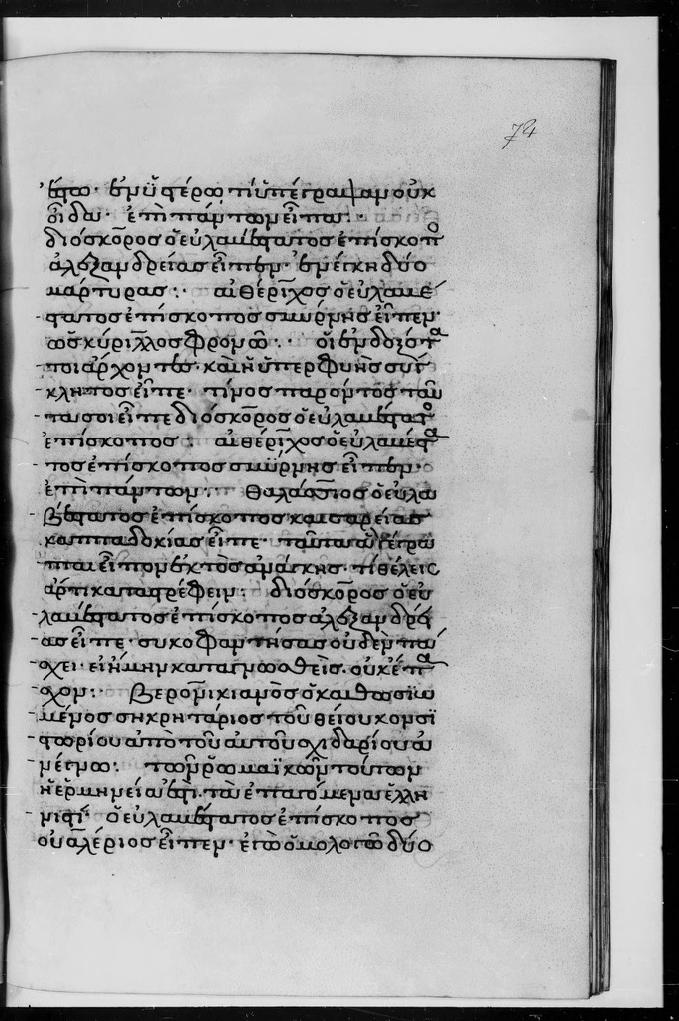 74
ἔστω· ἐν ὧ φέρω τί ὑπέγραψαμ οὐκ
οἶδα· ἐπὶ πάντων εἶπα:·
διόσκορος ὁ εὐλαβέστατος ἐπίσκοπο
ἀλεξανδρείας εἶπεν· ἐνέγκη δύο
μάρτυρας:· αἰθέριχος ὁ εὐλαβέ
στατος ἐπίσκοπος σμύρνης εἶπεν·
ὡς κύριλλος φρονῶ:· οἱ ἐνδοξότα
τοι ἄρχοντες· καὶ ἡ ὑπερφυὴς σύγ
κλητος εἶπε· τίνος παρόντος ταῦ
τα σοι εἶπε διόσκορος ὁ εὐλαβέστατο
ἐπίσκοπος: αἰθέριχος ὁ εὐλαβέστα
τος ἐπίσκοπος σμύρνης εἶπεν·
ἐπὶ πάντων: θαλάσσιος ὁ εὐλα
βέστατος ἐπίσκοπος καισαρείας
καππαδοκίας εἶπε· ταῦτα ἃ γέγρα
πται εἶπον ἐκτὸς ἀνάγκης· τί θέλεις
ἄρτι καταστρέφειν: διόσκορος ὁ εὐ
λαβέστατος ἐπίσκοπος ἀλεξανδρεί
ας εἶπε· συκοφαντήσας οὐδὲν πά
σχει· εἰ ἤμην καταγνωσθεὶς· οὐκ ἔπα
σχον: βερονικιανὸς ὁ καθωσιω
μένος σηκρητάριος τοῦ θείου κονσι
στωρίου ἀπὸ τοῦ αὐτοῦ σχιδαρίου ἀ
νέγνω: τῶν ῥωμαϊκῶν τούτων
ἡ ἑρμηνεία ἐστὶ· τὰ ἐπαγόμενα ἑλλη
νιστί· ὁ εὐλαβέστατος ἐπίσκοπος
οὐαλέριος εἶπεν· ἐγὼ ὁμολογῶ δύο